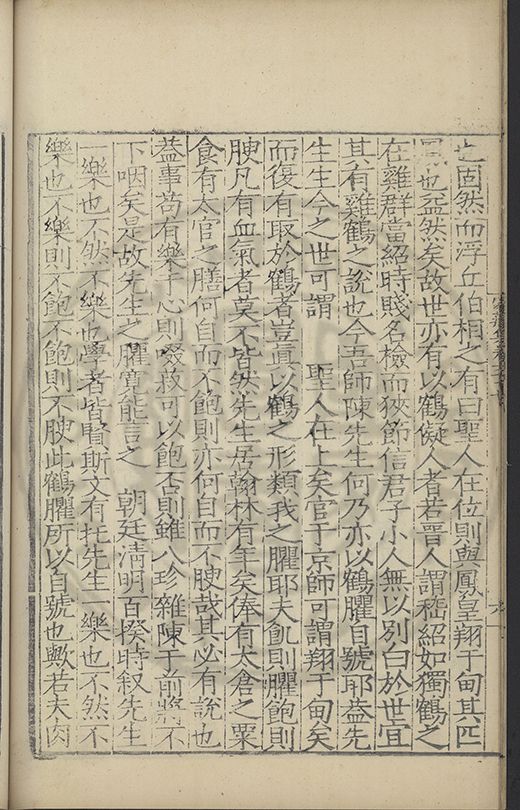 之固然而浮丘伯相之有曰聖人在位則與鳳皇翔于甸其匹
也盃然矣故世亦有以鶴儗人者若晋人謂嵇紹如獨鶴之
在雞群當紹時賤名檢而狹節信君子小人無以别白於世宜
其有雞鶴之說也今吾師陳先生何乃亦以鶴臞自號耶葢先
生生今之世可謂　聖人在上矣官于京師可謂翔于甸矣
而復有取於鶴者豈真以鶴之形類我之臞耶夫飢則臞飽則
腴凡有血氣者莫不皆然先生居翰林有年矣俸有太倉之粟
食有太官之膳何自而不飽則亦何自而不腴哉其必有說也
葢事苟有樂于心則啜菽可以飽否則雖八珍雜陳于前將不
下咽矣是故先生之臞寔能言之　朝廷淸明百揆時叙先生
一樂也不然不樂也學者皆賢斯文有托先生一樂也不然不
樂也不樂則不飽不飽則不腴此鶴臞所以自號也歟若夫肉